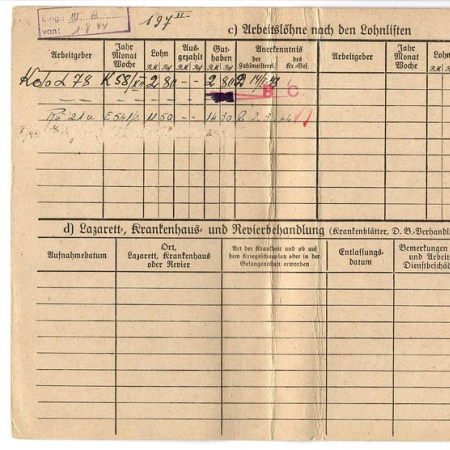 Eing.: III. B.
von: 1.8.44
197 II
c) Arbeitslöhne nach den Lohnlisten
Arbeitgeber
Jahr Monat Woche
Lohn
R.M. Pf.
Aus- gezahlt
R.M. Pf.
Gut- haben
R.M. Pf.
Anerkenntnis
der Zahlmeisterei
des Kr.-Gef.
Arbeitgeber
Jahr Monat Woche
Lohn
R.M.
78 K 58 2 80 - - 2 80
B C
21a E 541 11 50 - - 14 30
d) Lazarett-, Krankenhaus- und Revierbehandlung (Krankenblätter, D. B.-Verhandl
Aufnahmedatum
Ort, Lazarett, Krankenhaus oder Revier
Art der Krankheit und ob auf dem Kriegsschauplatz oder in der Gefangenschaft erworben
Entlassungs- datum
Bemerkungen und Arbeits Dienstbeschäd